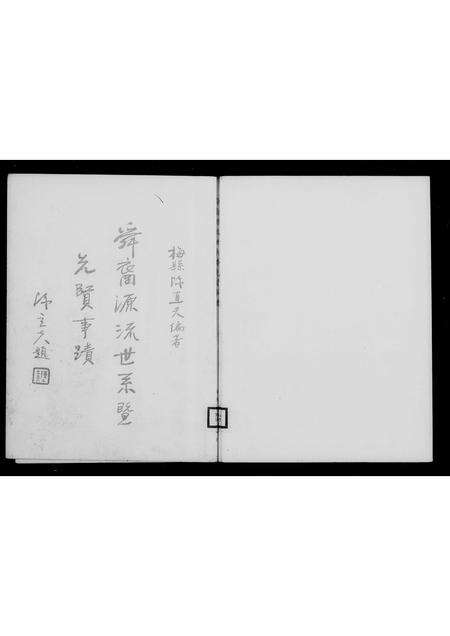 梅縣陈直夫編著
舜裔源流世系暨
先賢事蹟
陈立夫題